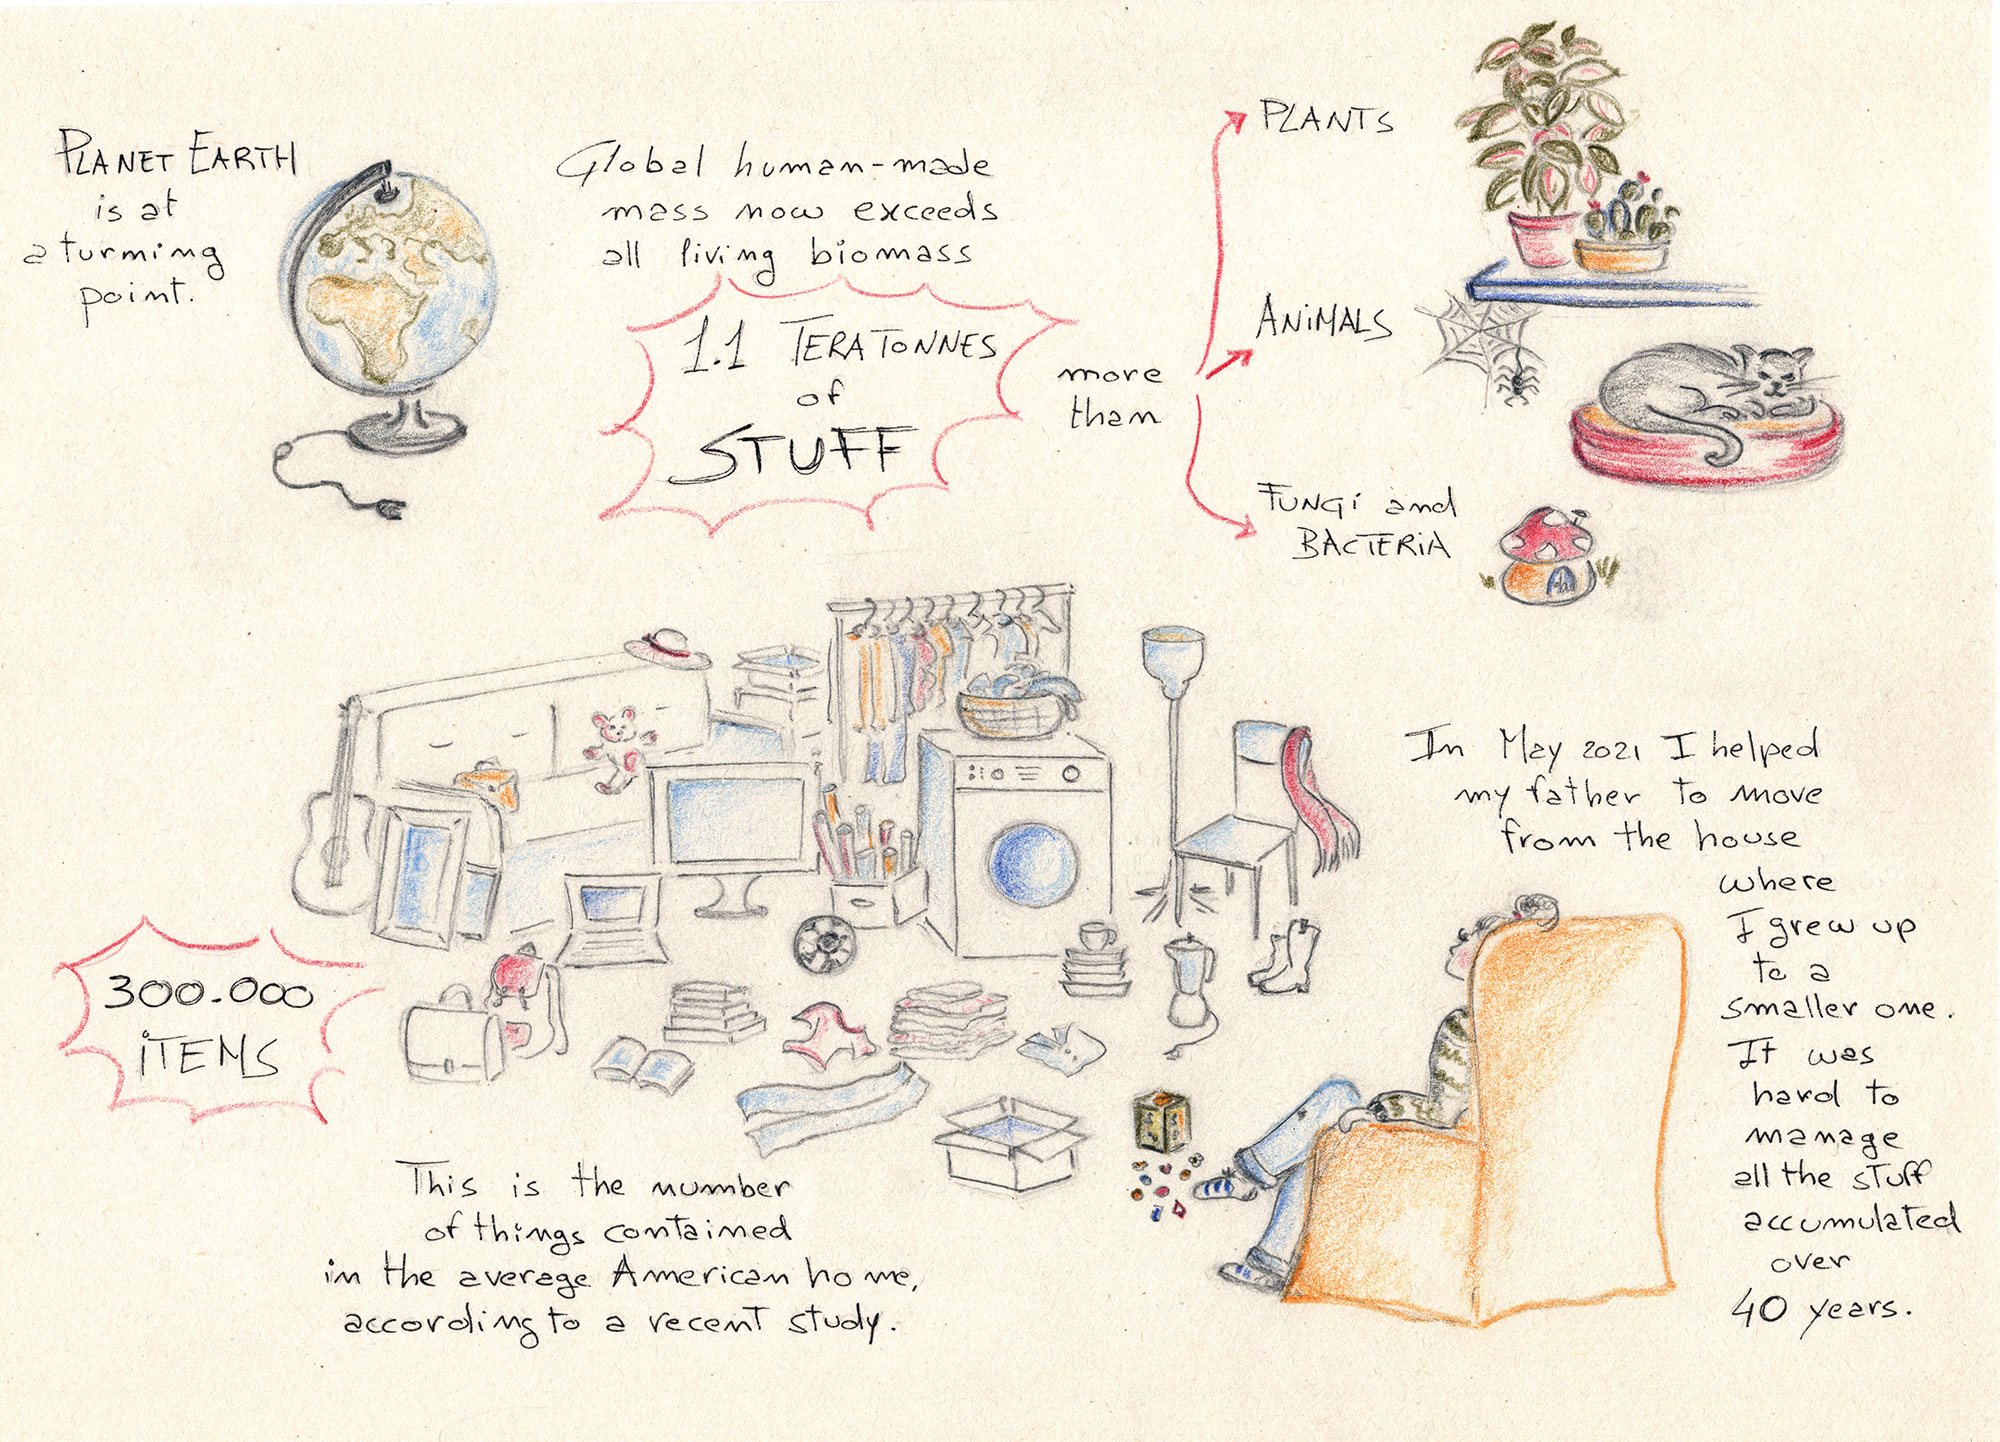 PLANET EARTH
is at
a turning
point.
Global human-made
mass now exceeds
all living biomass
1.1 TERATONNES
of
STUFF
more
than
PLANTS
ANiMALS
FUNGi and
BACTERiA
300.000
iTEMS
This is the number
of things contained
in the average American home,
according to a recent study.
In May 2021 I helped
my father to move
from the house
where
I grew up
to a
smaller one.
It was
hard to
manage
all the stuff
accumulated
over
40 years.